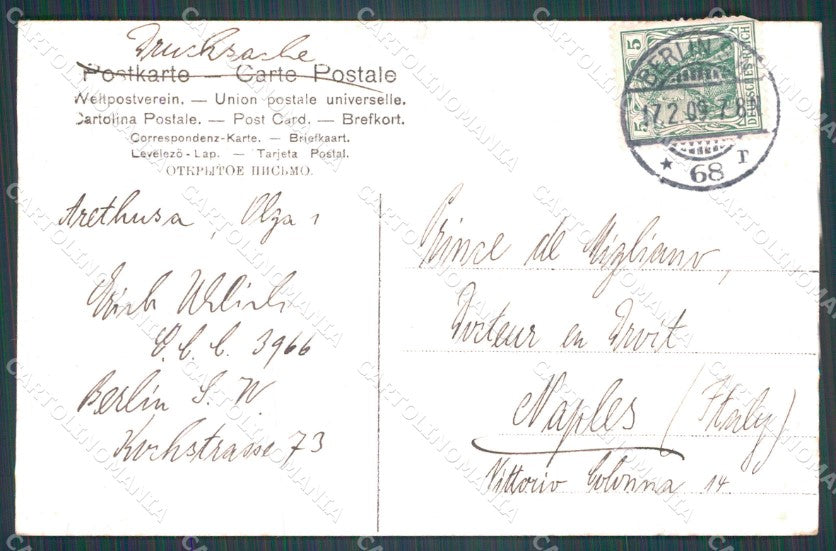 Drucksache
Postkarte — Carte Postale
Weltpostverein. — Union postale universelle.
Cartolina Postale. — Post Card. — Brefkort.
Correspondenz-Karte. — Briefkaart.
Levelező-Lap. — Tarjeta Postal.
ОТКРЫТОЕ ПИСЬМО.
5 5
DEUTSCHES REICH
BERLIN
17.2.09.7-8
* 68
Arethusa, Olga
Erich
C. C. C. 3966
Berlin S. W.
Kochstrasse 73
Prince de Migliano,
Docteur en Droit
Naples (Italy)
Vittorio Colonna 14.
CARTOLINOMANIA